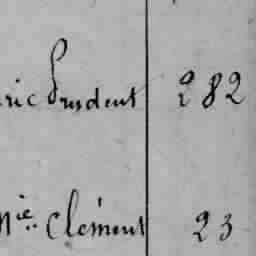 ric Prudent 282
Mie. Clément 23